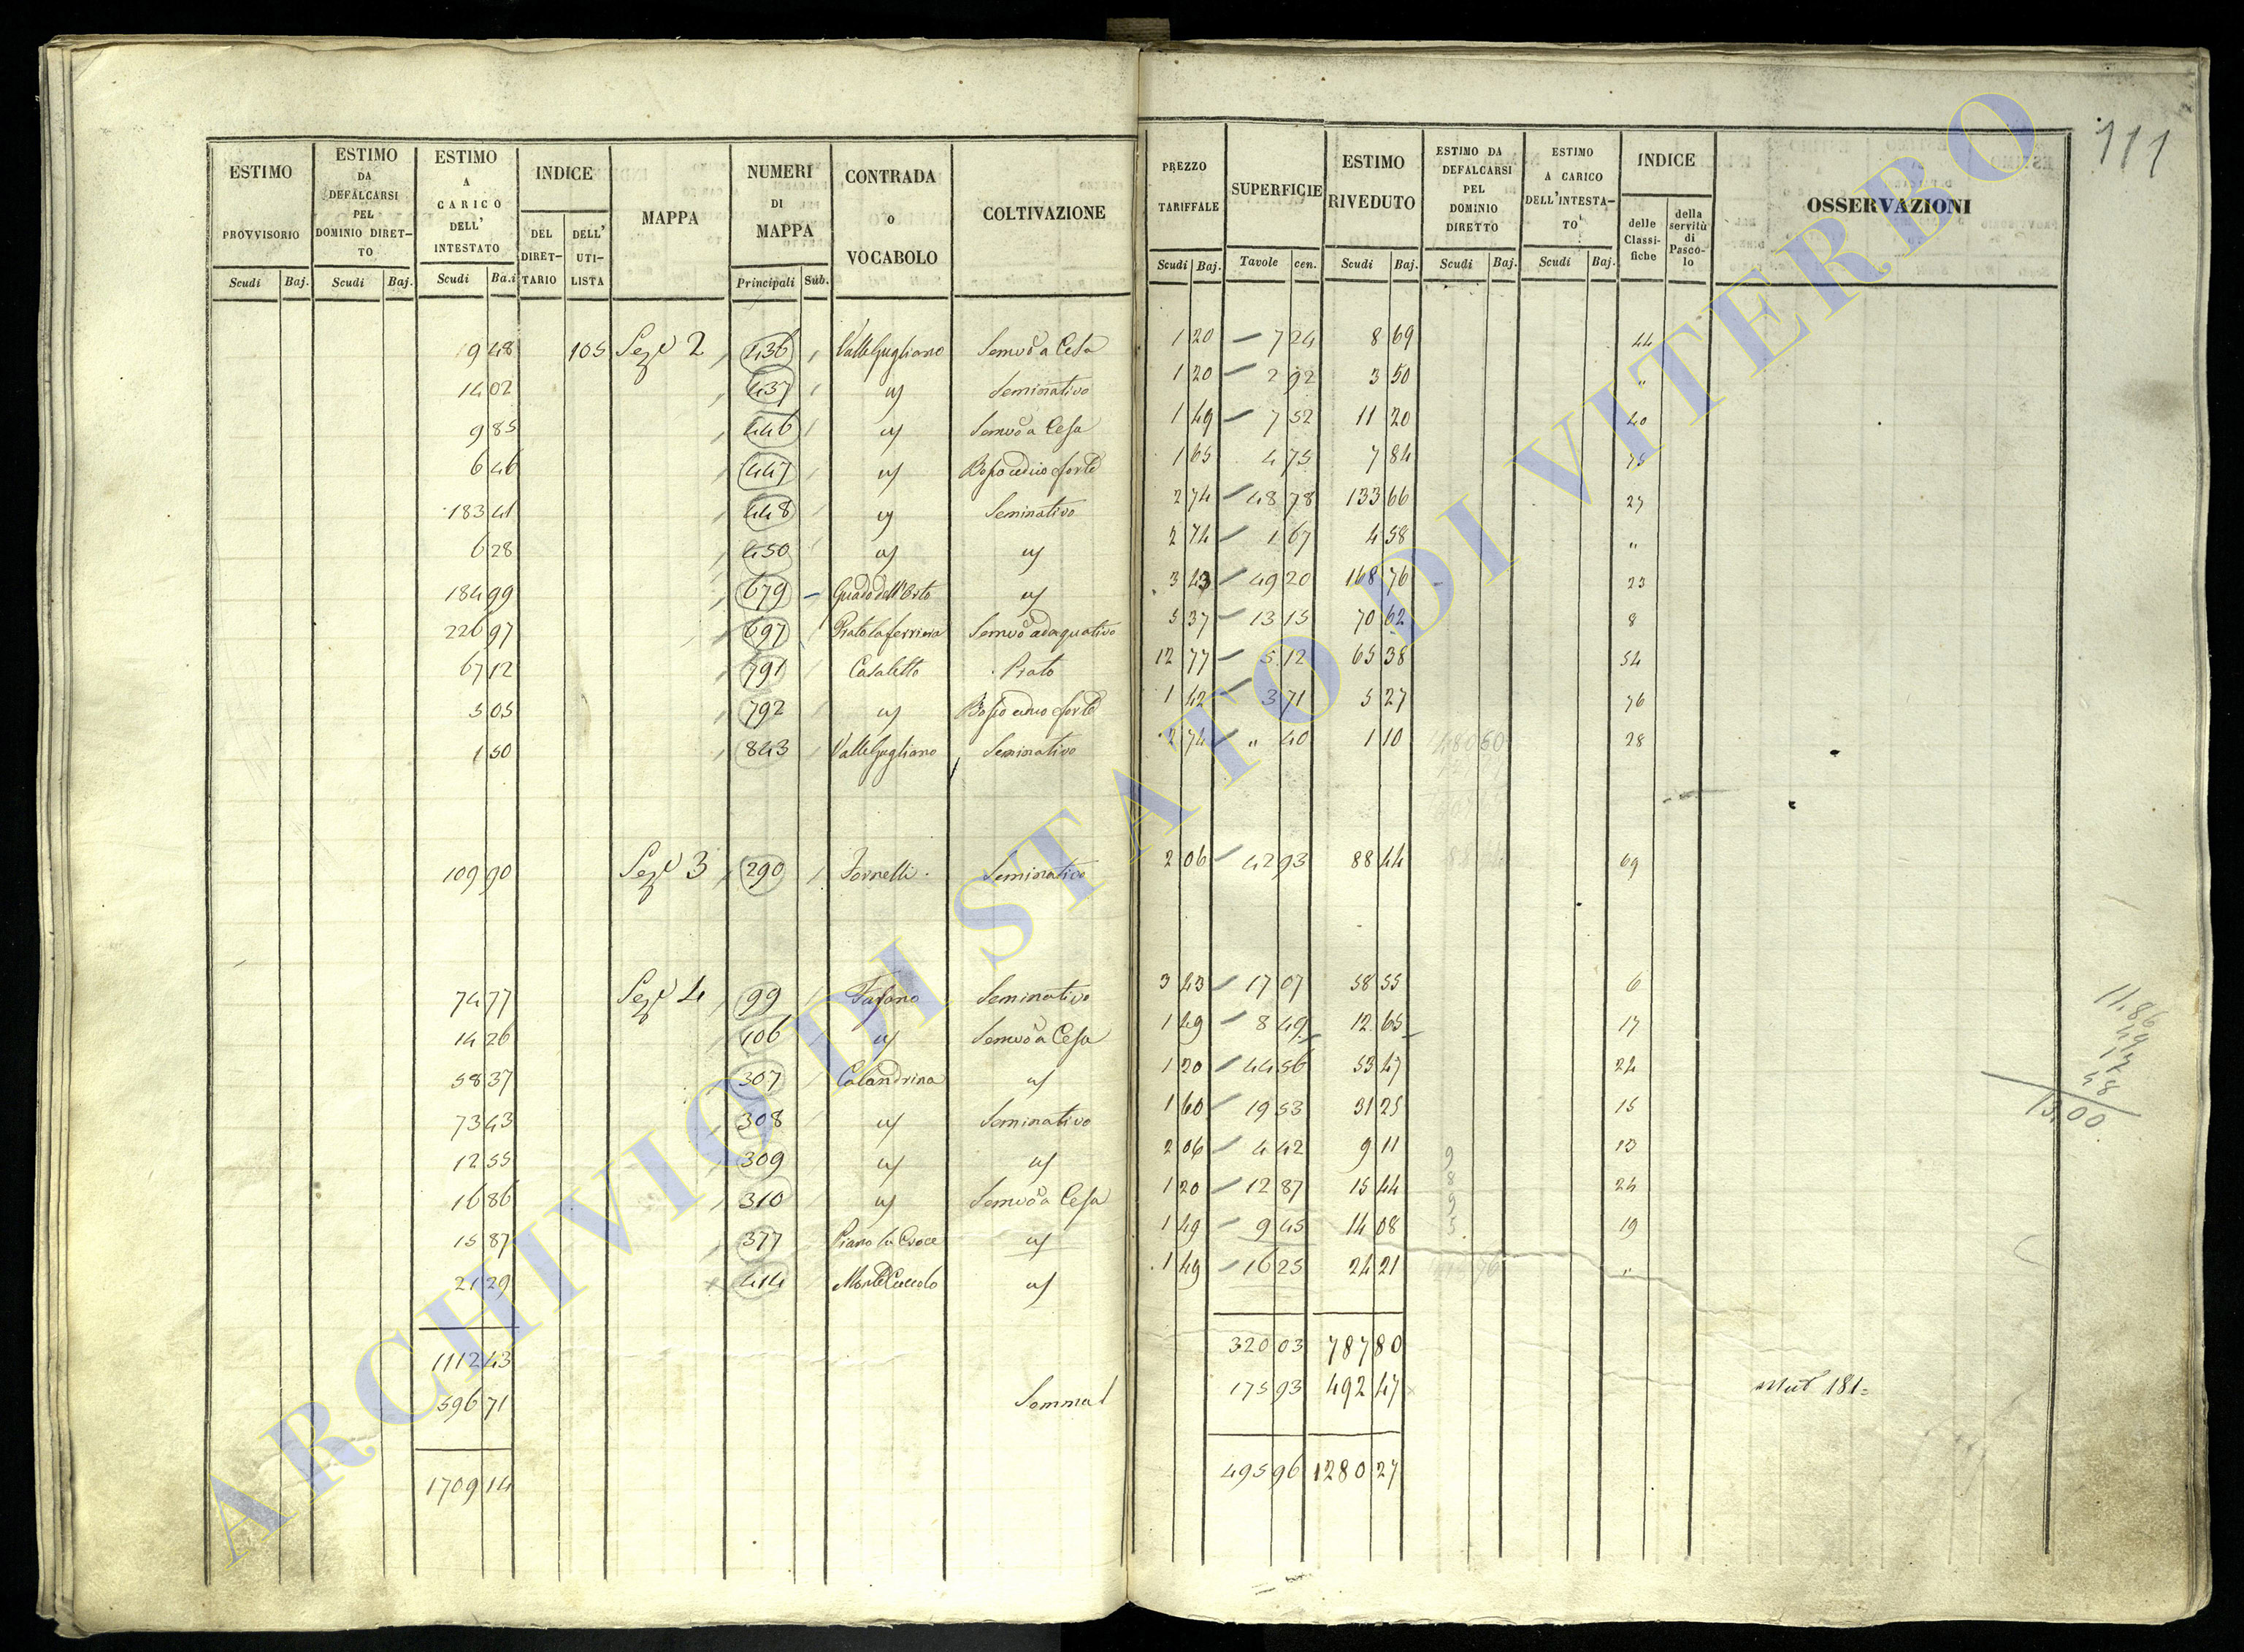 111
ESTIMO PROVVISORIO Scudi Baj.
ESTIMO DA DEFALCARSI PEL DOMINIO DIRET-TO Scudi Baj.
ESTIMO A CARICO DELL' INTESTATO Scudi Ba.i
INDICE DEL DIRET-TARIO DELL' UTI-LISTA
MAPPA
NUMERI DI MAPPA Principali Sub.
CONTRADA o VOCABOLO
COLTIVAZIONE
PREZZO TARIFFALE Scudi Baj.
SUPERFICIE Tavole cen.
ESTIMO RIVEDUTO Scudi Baj.
ESTIMO DA DEFALCARSI PEL DOMINIO DIRETTO Scudi Baj.
ESTIMO A CARICO DELL'INTESTA-TO Scudi Baj.
INDICE delle Classi-fiche della servitù di Pasco-lo
OSSERVAZIONI
9 48 105 Seze 2 436 Valle Gugliano Semvo a Cesa 1 20 7 24 8 69 44
14 02 437 " Seminativo 1 20 2 92 3 50 "
9 85 446 " Semvo a Cesa 1 49 7 52 11 20 40
6 46 447 " Bosco ceduo forte 1 65 4 75 7 84 75
183 41 448 " Seminativo 2 74 48 78 133 66 27
6 28 450 " " 2 74 1 67 4 58 "
184 99 679 Guado dell'Orto " 3 43 49 20 168 76 23
226 97 697 Semvo adaquativo 5 37 13 15 70 62 8
67 12 791 Casaletto Prato 12 77 5 12 65 38 54
5 05 792 " Bosco ceduo forte 1 42 3 71 5 27 76
1 50 843 Valle Gugliano Seminativo 2 74 " 40 1 10 28
109 90 Seze 3 290 Fornelli Seminativo 2 06 42 93 88 44 69
74 77 Seze 4 99 Fafano Seminativo 3 43 17 07 58 55 6
14 26 106 " Semvo a Cesa 1 49 8 49 12 65 17
58 37 307 Calandrina " 1 20 44 56 53 47 24
73 43 308 " Seminativo 1 60 19 53 31 25 15
12 55 309 " " 2 06 4 42 9 11 13
16 86 310 " Semvo a Cesa 1 20 12 87 15 44 24
15 87 377 Piano la Croce " 1 49 9 45 14 08 19
21 29 414 Monte Cuccolo " 1 49 16 25 24 21 "
1112 43 320 03 787 80
596 71 Somma 175 93 492 47 Mut 181
1709 14 495 96 1280 27
11.86
49
17
48
13.00
ARCHIVIO DI STATO DI VITERBO